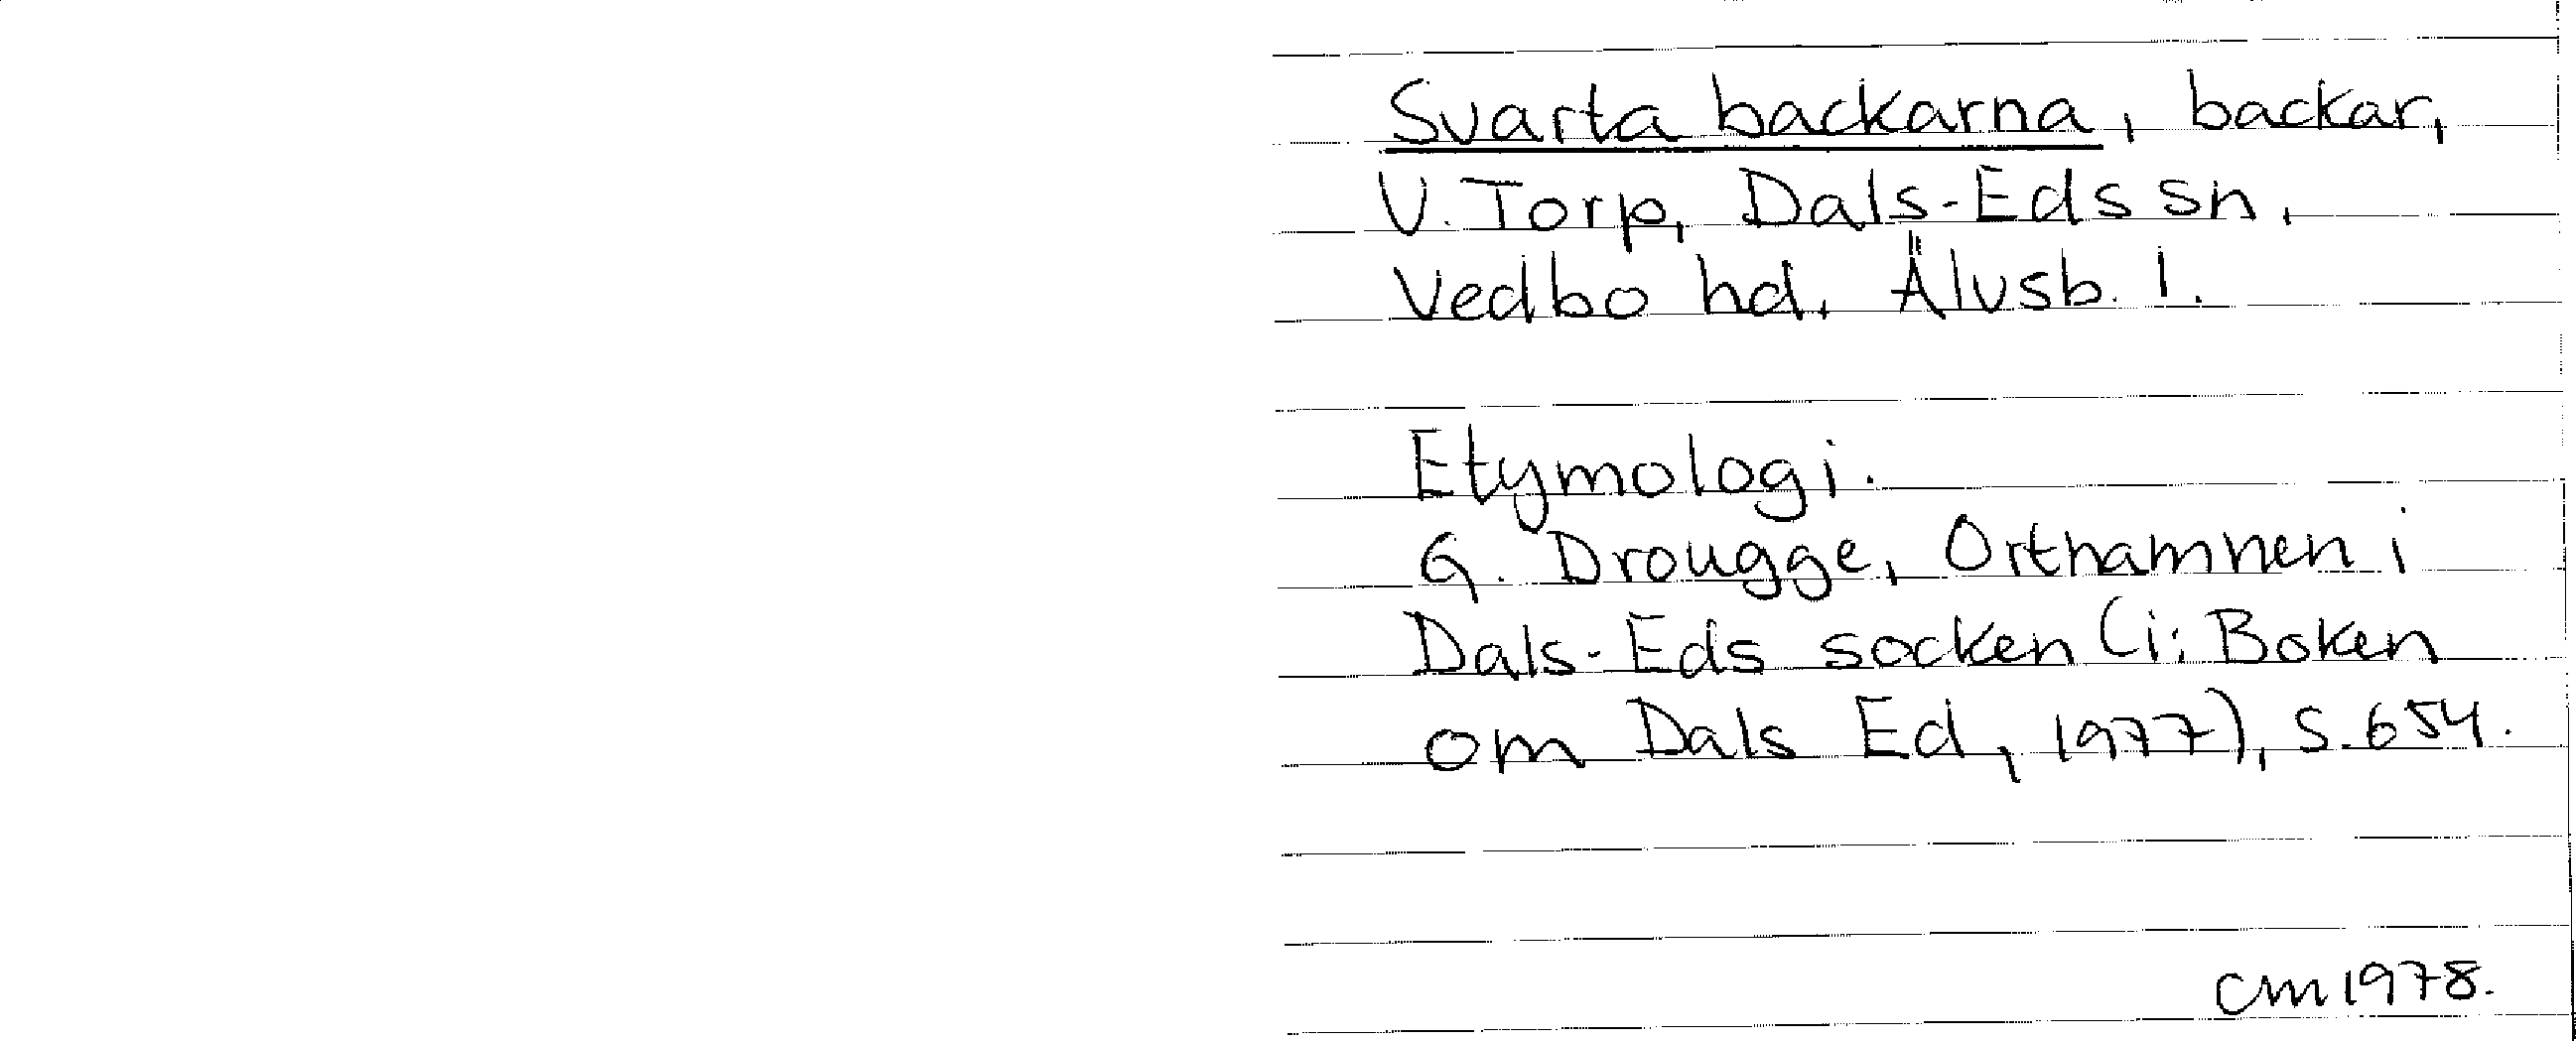 Svarta backarna, backar,
V. Torp, Dals-Eds sn.
Vedbo hd. Älvsb. l.
Etymologi.
G. Drougge, Ortnamnen i
Dals-Eds socken (i: Boken
om Dals Ed, 1977), s. 654.
CM 1978.